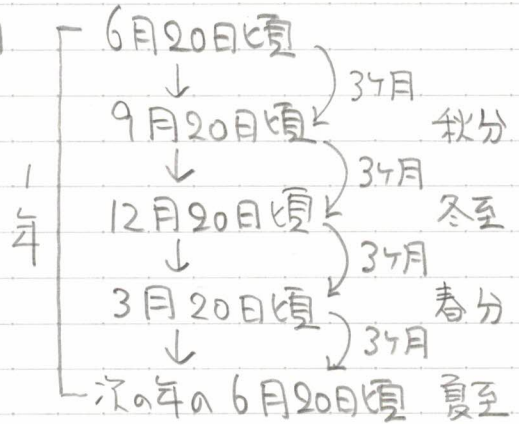 6月20日頃
↓ 3ヶ月
9月20日頃 秋分
↓ 3ヶ月
1年
12月20日頃 冬至
↓ 3ヶ月
3月20日頃 春分
↓ 3ヶ月
次の年の6月20日頃 夏至